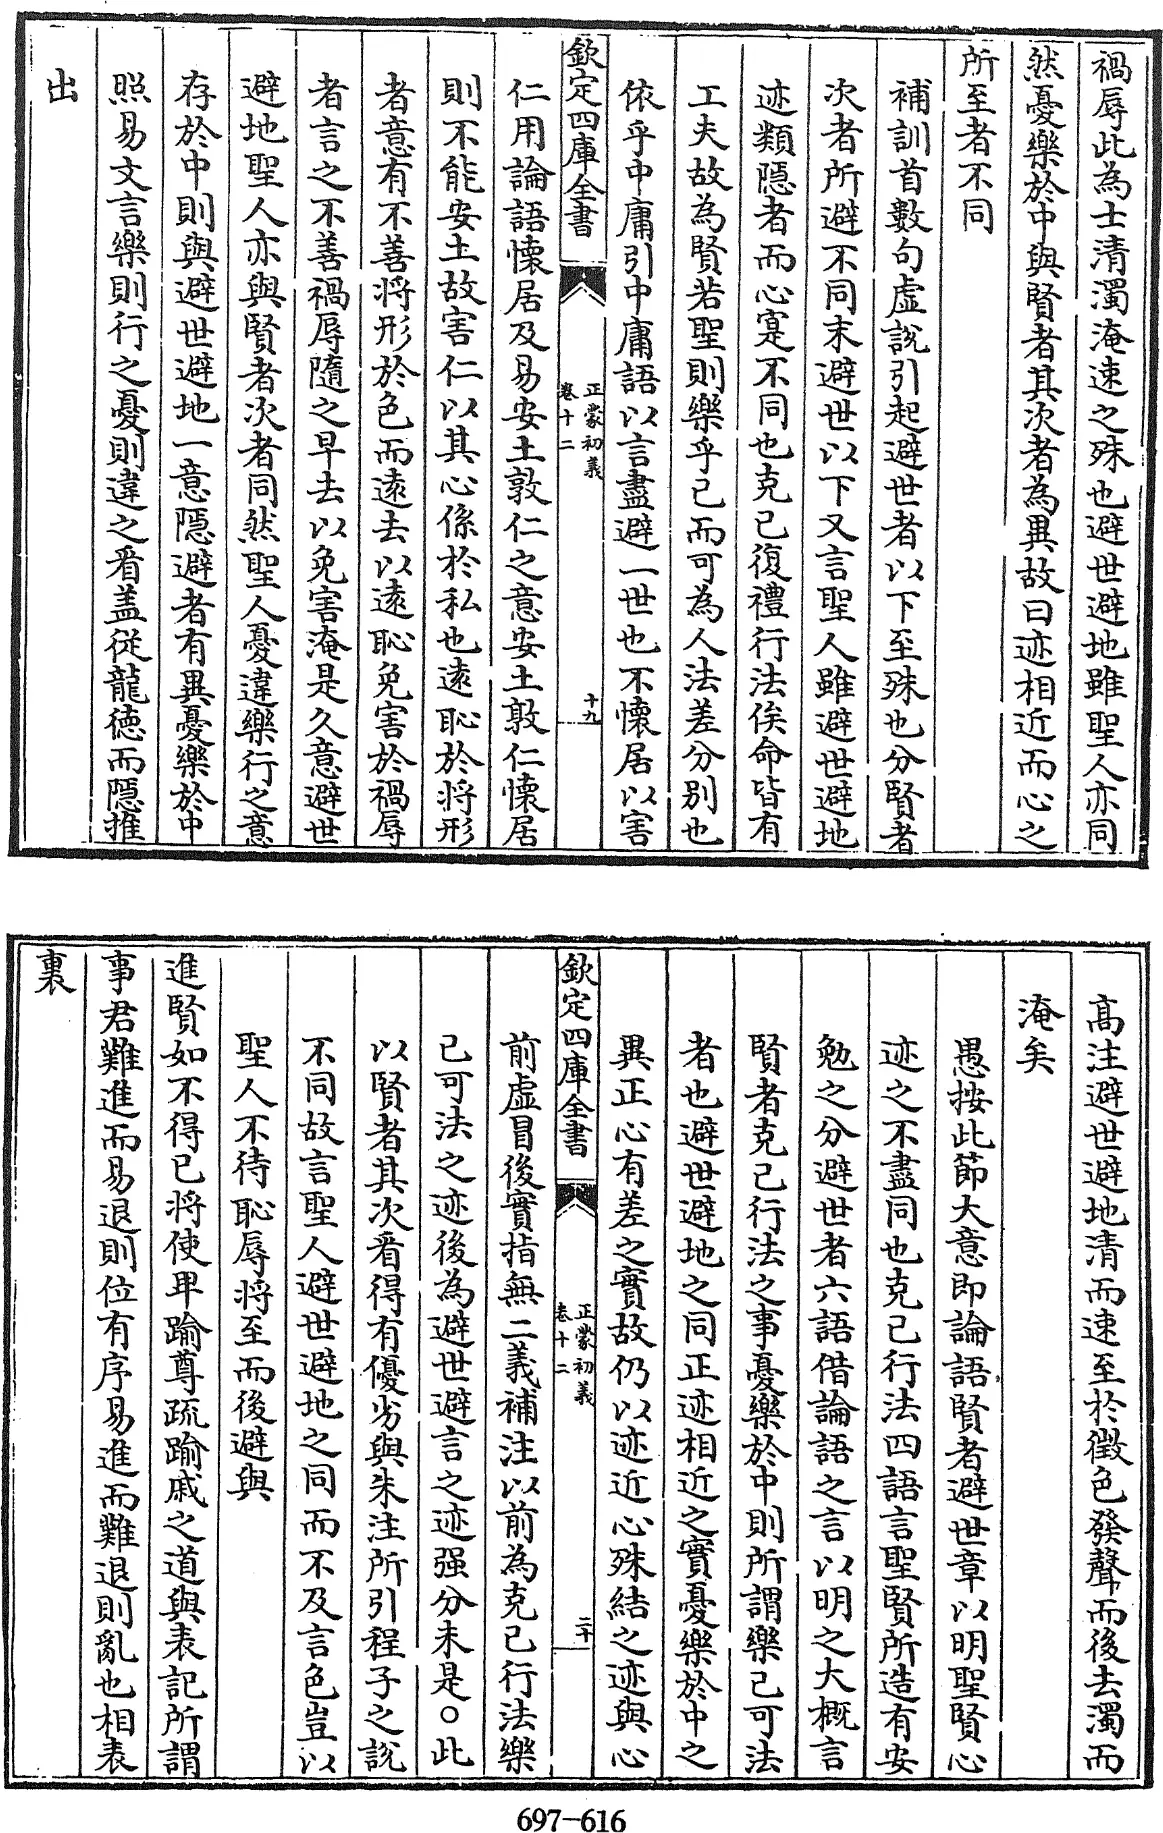 禍辱此為士清濁淹速之殊也避世避地雖聖人亦同
然憂樂於中與賢者其次者為異故曰迹相近而心之
所至者不同
補訓首數句虛說引起避世者以下至殊也分賢者
次者所避不同末避世以下又言聖人雖避世避地
迹類隱者而心寔不同也克己復禮行法俟命皆有
工夫故為賢若聖則樂乎己而可為人法差分別也
依乎中庸引中庸語以言盡避一世也不懷居以害
欽定四庫全書
正蒙初義
卷十二
十九
仁用論語懷居及易安土敦仁之意安土敦仁懷居
則不能安土故害仁以其心係於私也遠恥於將形
者意有不善將形於色而遠去以遠恥免害於禍辱
者言之不善禍辱隨之早去以免害淹是久意避世
避地聖人亦與賢者次者同然聖人憂違樂行之意
存於中則與避世避地一意隱避者有異憂樂於中
照易文言樂則行之憂則違之看盖從龍德而隱推
出
髙注避世避地清而速至於徵色發聲而後去濁而
淹矣
愚按此節大意即論語賢者避世章以明聖賢心
迹之不盡同也克己行法四語言聖賢所造有安
勉之分避世者六語借論語之言以明之大概言
賢者克己行法之事憂樂於中則所謂樂己可法
者也避世避地之同正迹相近之實憂樂於中之
異正心有差之實故仍以迹近心殊結之迹與心
欽定四庫全書
正蒙初義
卷十二
二十
前虛冒後實指無二義補注以前為克己行法樂
己可法之迹後為避世避言之迹强分未是○此
以賢者其次看得有優劣與朱注所引程子之說
不同故言聖人避世避地之同而不及言色豈以
聖人不待恥辱將至而後避與
進賢如不得已將使卑踰尊疏踰戚之道與表記所謂
事君難進而易退則位有序易進而難退則亂也相表
裏
697-616